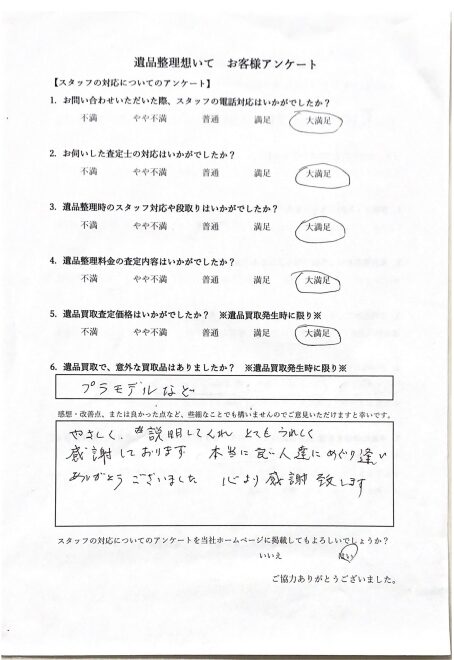 遺品整理想いて　お客様アンケート
【スタッフの対応についてのアンケート】
1. お問い合わせいただいた際、スタッフの電話対応はいかがでしたか？
不満　やや不満　普通　満足　大満足
2. お伺いした査定士の対応はいかがでしたか？
不満　やや不満　普通　満足　大満足
3. 遺品整理時のスタッフ対応や段取りはいかがでしたか？
不満　やや不満　普通　満足　大満足
4. 遺品整理料金の査定内容はいかがでしたか？
不満　やや不満　普通　満足　大満足
5. 遺品買取査定価格はいかがでしたか？　※遺品買取発生時に限り※
不満　やや不満　普通　満足　大満足
6. 遺品買取で、意外な買取品はありましたか？　※遺品買取発生時に限り※
プラモデルなど
感想・改善点、または良かった点など、些細なことでも構いませんのでご意見いただけますと幸いです。
やさしく、説明してくれ とてもうれしく
感謝しております 本当に良い人達にめぐり逢い
ありがとうございました 心より感謝致します
スタッフの対応についてのアンケートを当社ホームページに掲載してもよろしいでしょうか？
いいえ　はい
ご協力ありがとうございました。